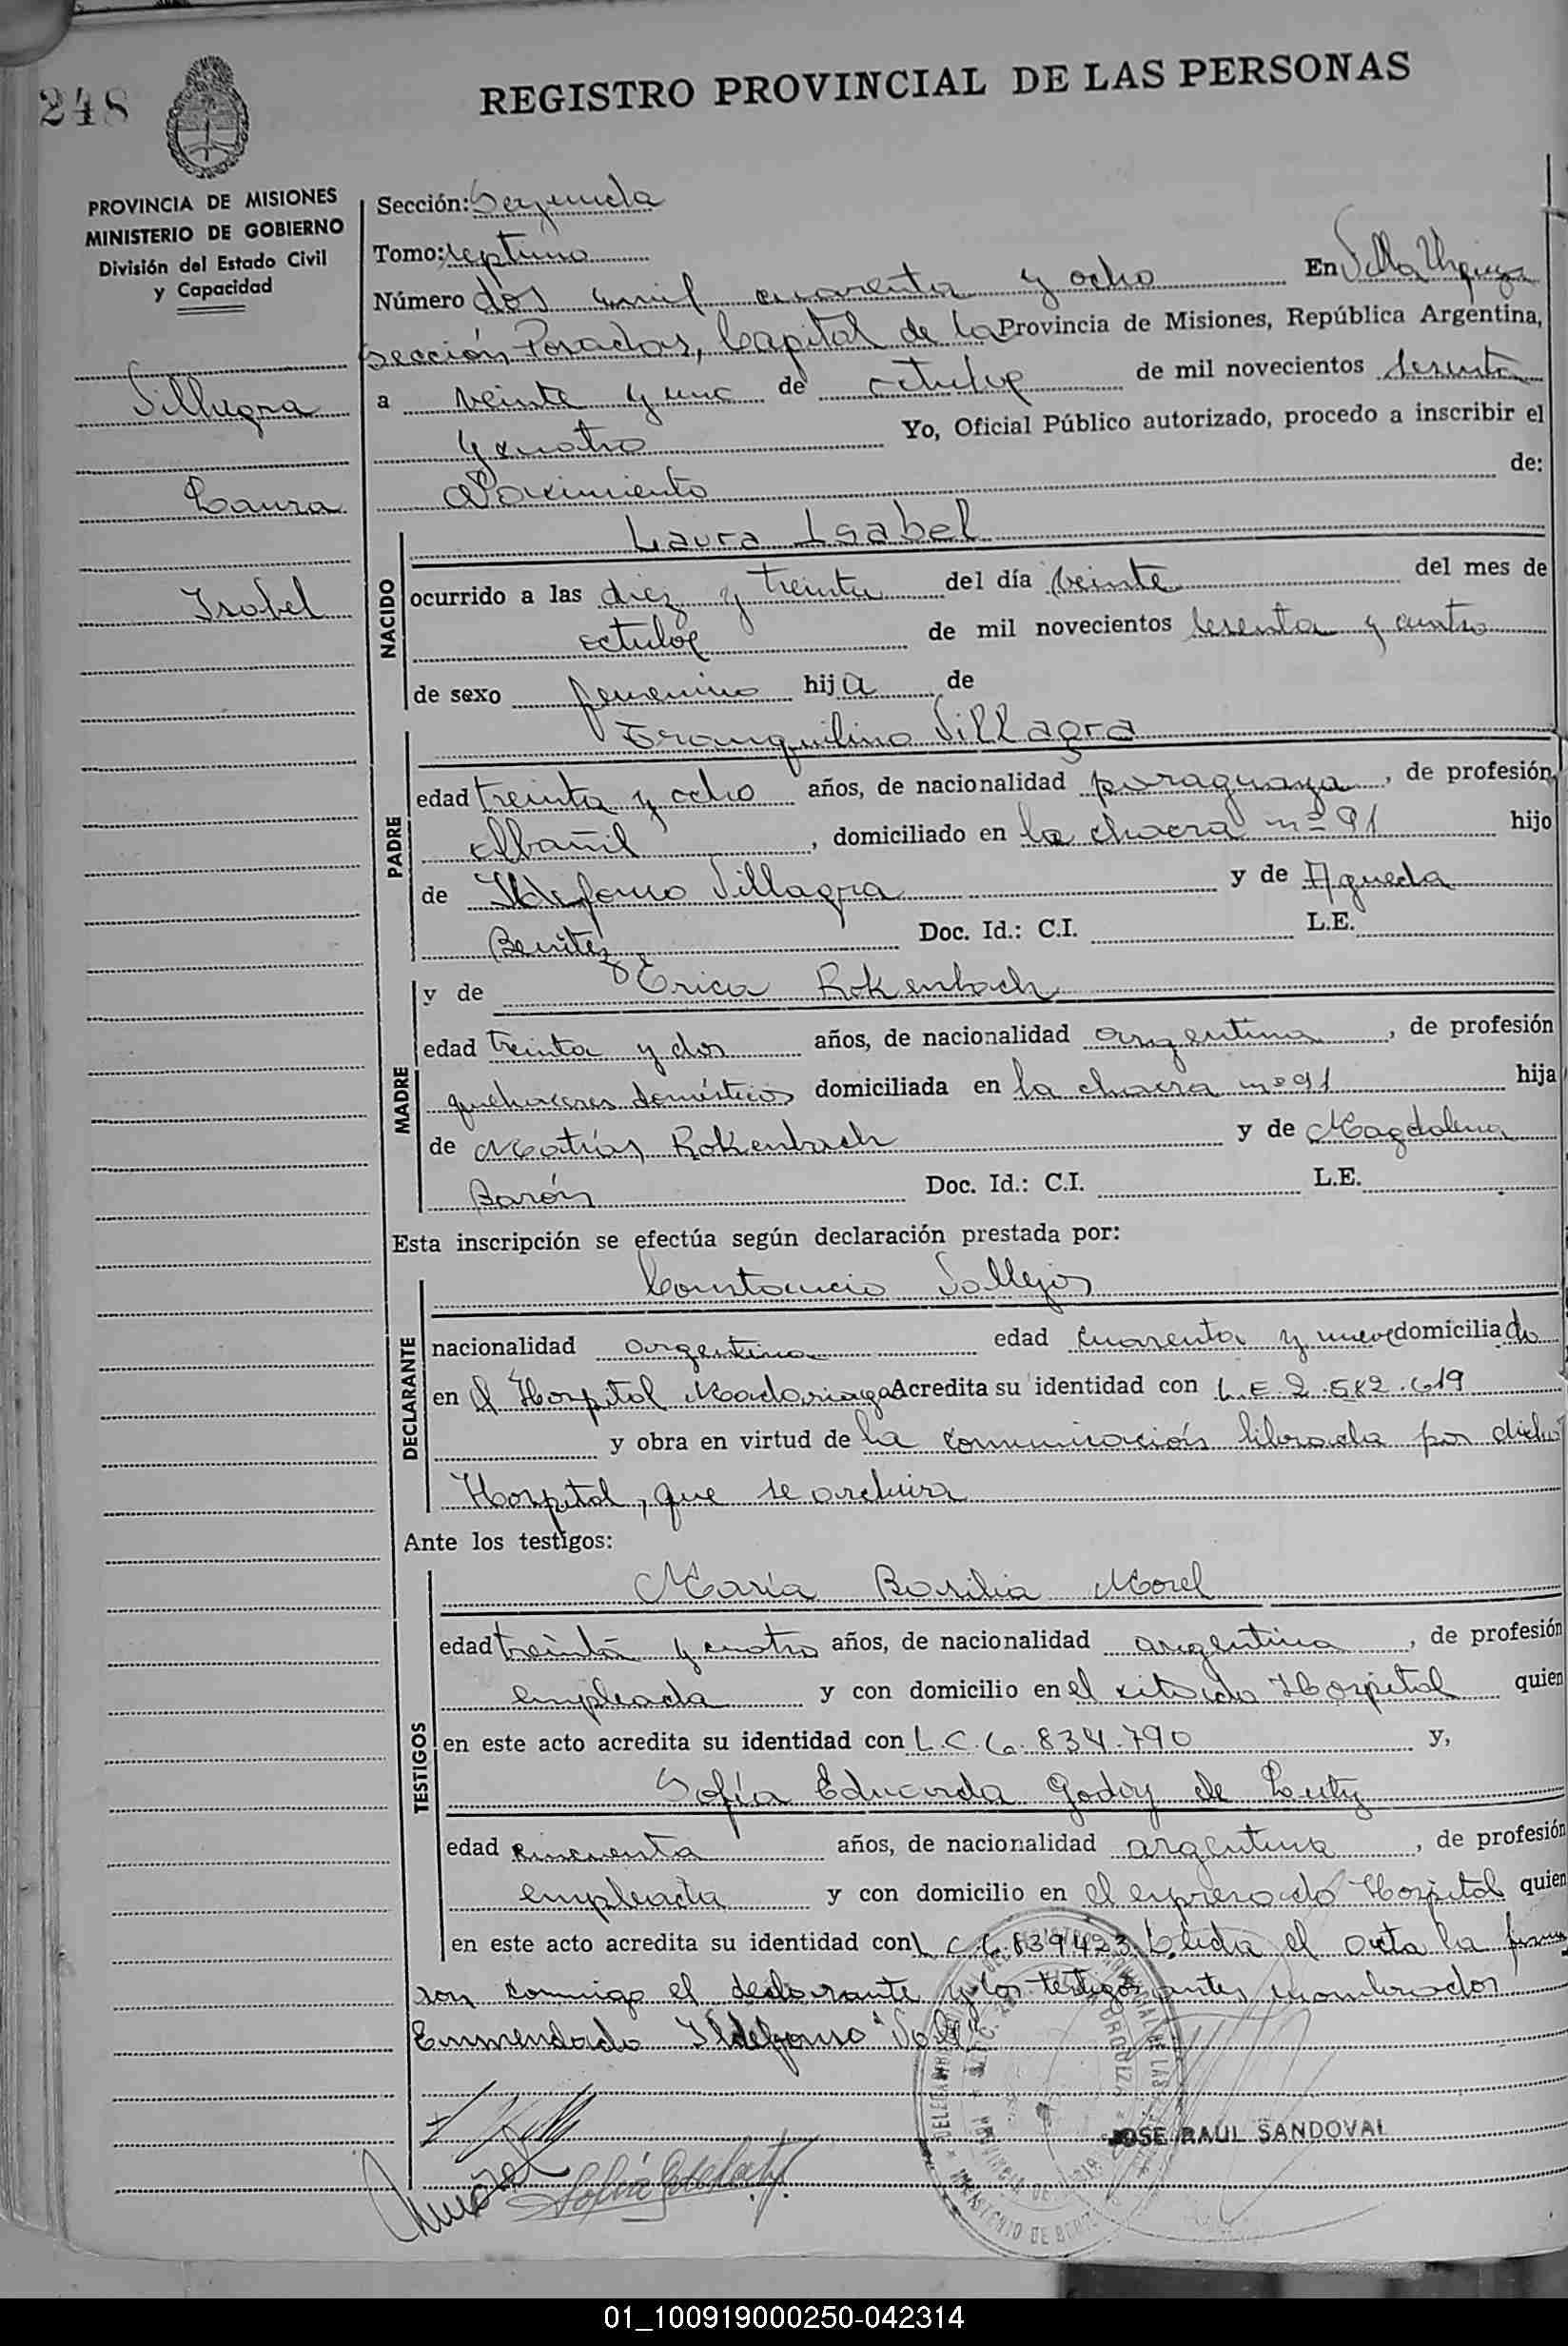 248
REGISTRO PROVINCIAL DE LAS PERSONAS
PROVINCIA DE MISIONES
MINISTERIO DE GOBIERNO
División del Estado Civil
y Capacidad
Villagra
Laura
Isabel
Sección: Segunda
Tomo: septimo
Número dos mil cuarenta y ocho En Villa Urquiza
sección Posadas, Capital de la Provincia de Misiones, República Argentina,
a veinte y uno de octubre de mil novecientos sesenta
y cuatro Yo, Oficial Público autorizado, procedo a inscribir el
Nacimiento de:
NACIDO
Laura Isabel
ocurrido a las diez y treinta del día veinte del mes de
octubre de mil novecientos sesenta y cuatro
de sexo femenino hija de
PADRE
Tranquilino Villagra
edad treinta y ocho años, de nacionalidad paraguaya, de profesión
albañil, domiciliado en la chacra nº 91 hijo
de Ildefonso Villagra y de Agueda
Benitez Doc. Id.: C.I. L.E.
MADRE
y de Erica Rokenbach
edad treinta y dos años, de nacionalidad argentina, de profesión
quehaceres domésticos domiciliada en la chacra nº 91 hija
de Matías Rokenbach y de Magdalena
Barón Doc. Id.: C.I. L.E.
Esta inscripción se efectúa según declaración prestada por:
DECLARANTE
Constancio Vallejos
nacionalidad argentina edad cuarenta y nueve domiciliado
en el Hospital Madariaga Acredita su identidad con L.E. 2.582.619
y obra en virtud de la comunicación librada por dicho
Hospital, que se archiva
Ante los testigos:
TESTIGOS
María Basilia Morel
edad treinta y cuatro años, de nacionalidad argentina, de profesión
empleada y con domicilio en el citado Hospital quien
en este acto acredita su identidad con L.C. 6.834.790 y,
Sofía Eduarda Godoy de
edad cincuenta años, de nacionalidad argentina, de profesión
empleada y con domicilio en el expresado Hospital quien
en este acto acredita su identidad con L.C. 6.839423. Leida el acta la firma
ron conmigo el declarante y los testigos antes nombrados
Enmendado Ildefonso "Vale"
JOSE RAUL SANDOVAL
01_100919000250-042314